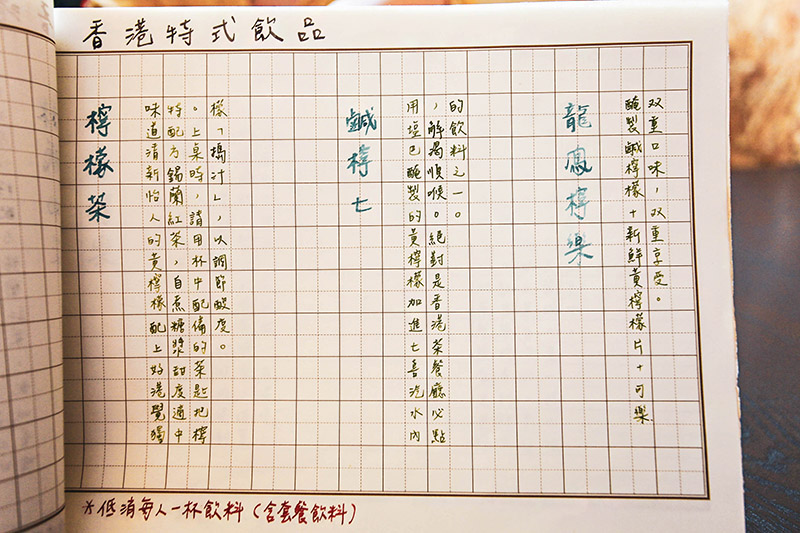 香港特式飲品
檸檬茶
味道清新怡人的黃檸檬配上好港覺獨
特配方錫蘭紅茶，自煮糖漿甜度適中
。上桌時，請用杯中配備的茶匙把檸
檬「搗汁」，以調節酸度。
鹹檸七
用塩巴醃製的黃檸檬加進七喜汽水內
，解渴順喉。絕對是香港茶餐廳必點
的飲料之一。
龍鳳檸樂
醃製鹹檸檬+新鮮黃檸檬片+可樂
双重口味，双重享受。
*低消每人一杯飲料（含套餐飲料）